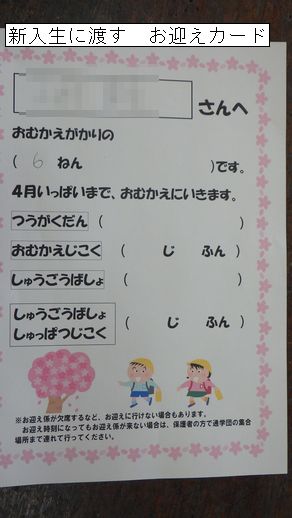 新入生に渡す　お迎えカード
さんへ
おむかえがかりの
（ 6 ねん　　　　　　　　　）です。
4月いっぱいまで、おむかえにいきます。
つうがくだん（　　　　　　　　　　）
おむかえじこく（　　　じ　　ふん　）
しゅうごうばしょ（　　　　　　　　）
しゅうごうばしょ
しゅっぱつじこく（　　　じ　　ふん　）
※お迎え係が欠席するなど、お迎えに行けない場合もあります。
お迎え時刻になってもお迎え係が来ない場合は、保護者の方で通学団の集合
場所まで連れて行ってください。